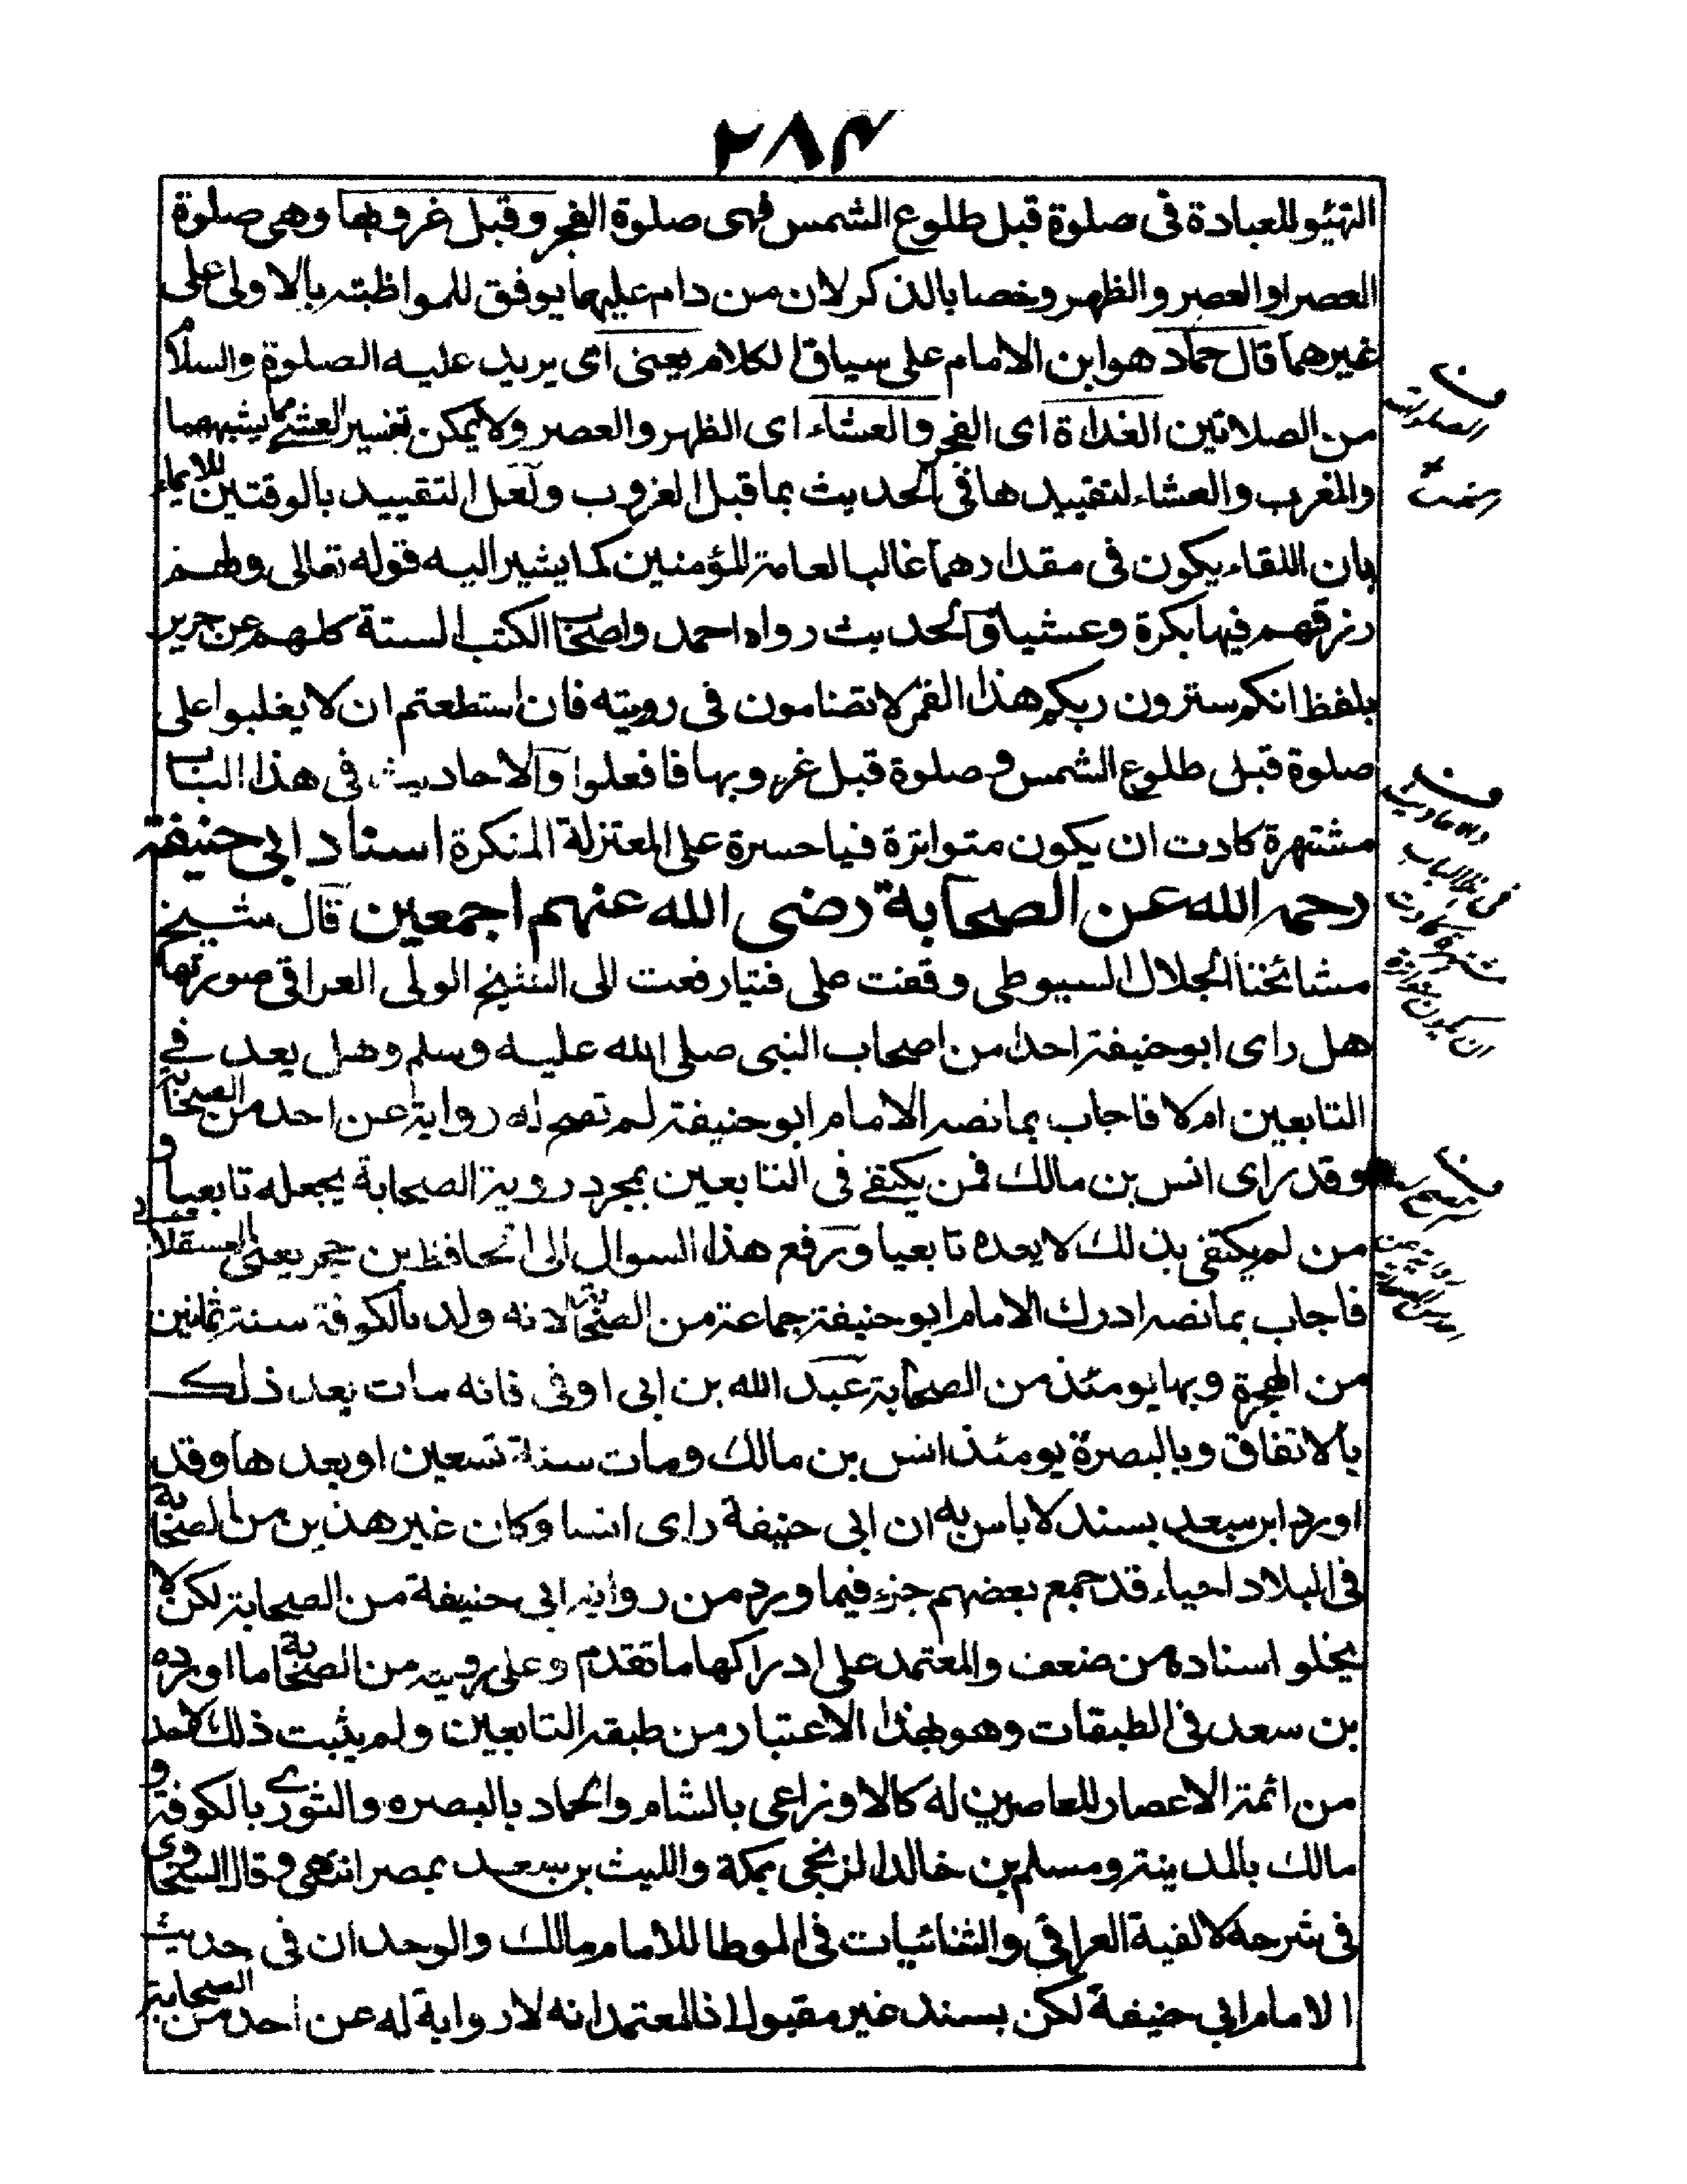 ٢٨٤
التهيؤ للعبادة في صلوة قبل طلوع الشمس فهي صلوة الفجر وقبل غروبها وهي صلوة
العصر او العصر والظهر وخصا بالذكر لان من دام عليهما يوفق للمواظبته بالاولى على
غيرهما قال حماد هو ابن الامام على سياق الكلام يعنى اى يريد عليه الصلوة والسلام
من الصلاتين الغداة اى الفجر والعشاء اى الظهر والعصر ولا يمكن تفسير العشى بما يشبههما
والمغرب والعشاء لتقييدها في الحديث بما قبل الغروب ولعل التقييد بالوقتين للايماء
بان اللقاء يكون في مقدارهما غالبا لعامة المؤمنين كما يشير اليه قوله تعالى ولهم
رزقهم فيها بكرة وعشيا والحديث رواه احمد واصحاب الكتب الستة كلهم عن جرير
بلفظ انكم سترون ربكم هذا القمر لا تضامون في رويته فان استطعتم ان لا يغلبوا على
صلوة قبل طلوع الشمس و صلوة قبل غروبها فافعلوا والاحاديث في هذا الباب
مشتهرة كادت ان يكون متواترة فيا حسرة على المعتزلة المنكرة اسناد ابى حنيفة
رحمه الله عن الصحابة رضى الله عنهم اجمعين قال شيخ
مشائخنا الجلال السيوطى وقفت على فتيا رفعت الى الشيخ الولى العراقى صورتها
هل راى ابو حنيفة احدا من اصحاب النبى صلى الله عليه وسلم وهل يعد في
التابعين ام لا فاجاب بما نصه الامام ابو حنيفة لم تصح له رواية عن احد من الصحابة
وقد راى انس بن مالك فمن يكتفى في التابعين بمجرد روية الصحابة يجعله تابعيا و
من لم يكتفى بذلك لا يعده تابعيا ورفع هذا السوال الى الحافظ بن حجر يعنى العسقلانى
فاجاب بما نصه ادرك الامام ابو حنيفة جماعة من الصحابة لانه ولد بالكوفة سنة ثمانين
من الهجرة وبها يومئذ من الصحابة عبد الله بن ابى اوفى فانه مات بعد ذلك
بالاتفاق وبالبصرة يومئذ انس بن مالك ومات سنة تسعين او بعدها وقد
اورد ابن سعد بسند لا باس به ان ابى حنيفة راى انسا وكان غير هذين من الصحابة
في البلاد احياء قد جمع بعضهم جزء فيما ورد من رواية ابى حنيفة من الصحابة لكن لا
يخلو اسناده من ضعف والمعتمد على ادراكها ما تقدم وعلى رويته من الصحابة ما اورده
بن سعد في الطبقات وهو بهذا الاعتبار من طبقة التابعين ولم يثبت ذلك لاحد
من ائمة الاعصار للعاصرين له كالاوزاعى بالشام والحماد بالبصره والثورى بالكوفة و
مالك بالمدينة ومسلم بن خالد الزنجى بمكة والليث بن سعد بمصر انتهى وقال السخاوى
في شرحه لالفية العراقى والثنائيات في الموطا للامام مالك والوحدان في حديث
الامام ابى حنيفة لكن بسند غير مقبول اذ المعتمد انه لا رواية له عن احد من الصحابة